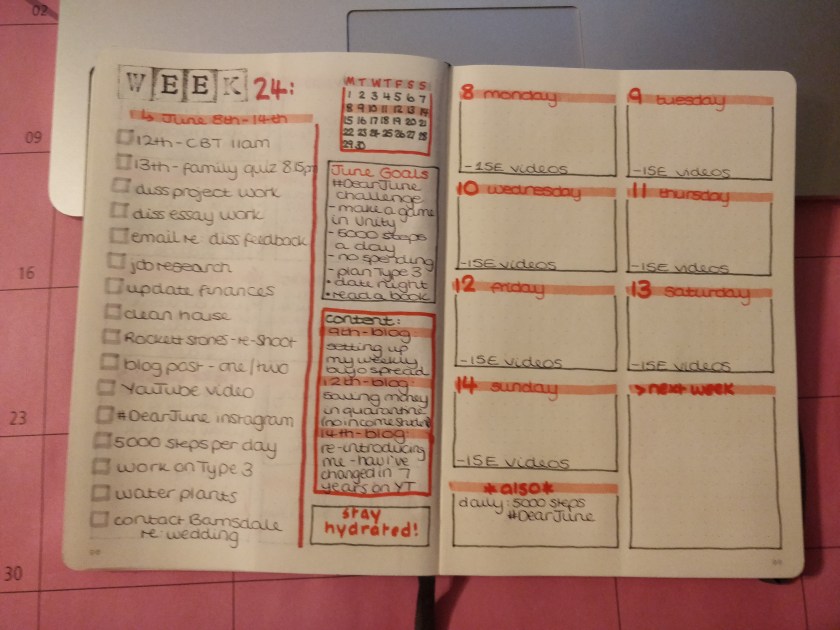 02
09
16
23
30
WEEK 24:
↳ June 8th-14th
12th- CBT 11am
13th- family quiz 8:15pm
diss project work
diss essay work
email re diss feedback
job research
update finances
clean house
Rockett stones-re-shoot
blog post - one/two
YouTube video
#DearJune instagram
5000 steps per day
work on Type 3
water plants
contact Barnsdale
re: wedding
M T W T F S S
1 2 3 4 5 6 7
8 9 10 11 12 13 14
15 16 17 18 19 20 21
22 23 24 25 26 27 28
29 30
June Goals
#DearJune
challenge
- make a game
in Unity
- 5000 steps
a day
- no spending
- plan Type 3
• date night
• read a book
content:
9th-blog
setting up
my weekly
bujo spread
12th-blog:
saving money
in quarantine
(no income student)
14th-blog:
re-introducing
me - how i've
changed in 7
years on YT
stay
hydrated!
8 monday
-15E videos
9 tuesday
-15E videos
10 wednesday
-15E videos
11 thursday
-15E videos
12 friday
-15E videos
13 saturday
-15E videos
14 sunday
-15E videos
> next week
*also*
daily: 5000 steps
#DearJune